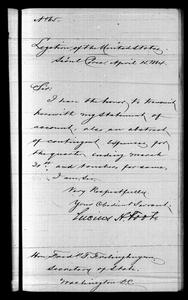 Legation of the United States
Seoul Corea April 15, 1884.
Sir:
I have the honor to transmit
herewith my Statement of
account, also an abstract
of contingent expenses for
the quarter ending March
31st and vouchers for same.
I am Sir,
Very Respectfully
Your Obedient Servant
Lucius H. Foote
Hon. Fred'k T. Frelinghuysen
Secretary of State.
Washington D.C.